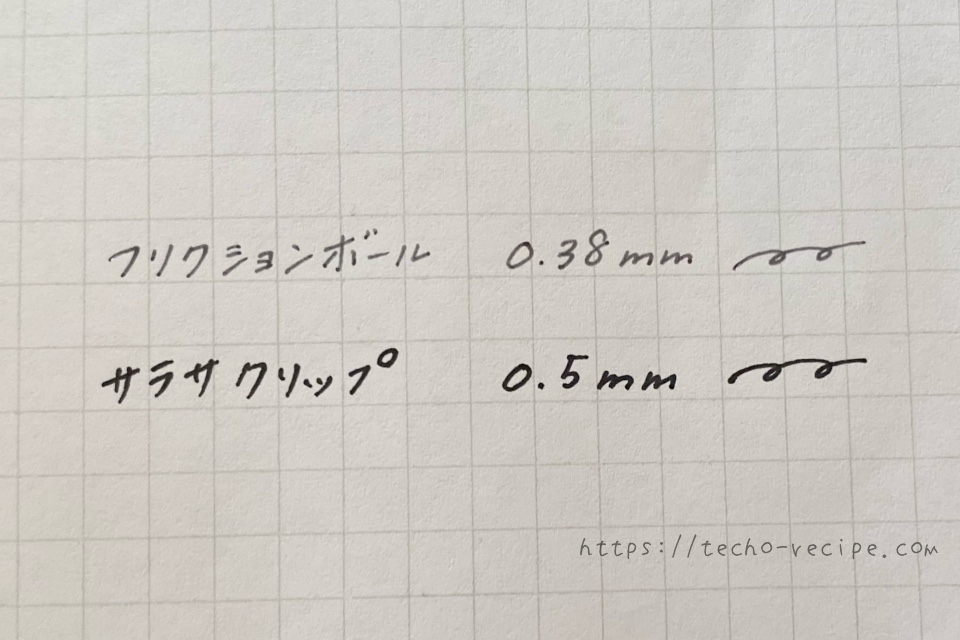 フリクションボール 0.38mm
サラサクリップ 0.5mm
https://techo-recipe.com